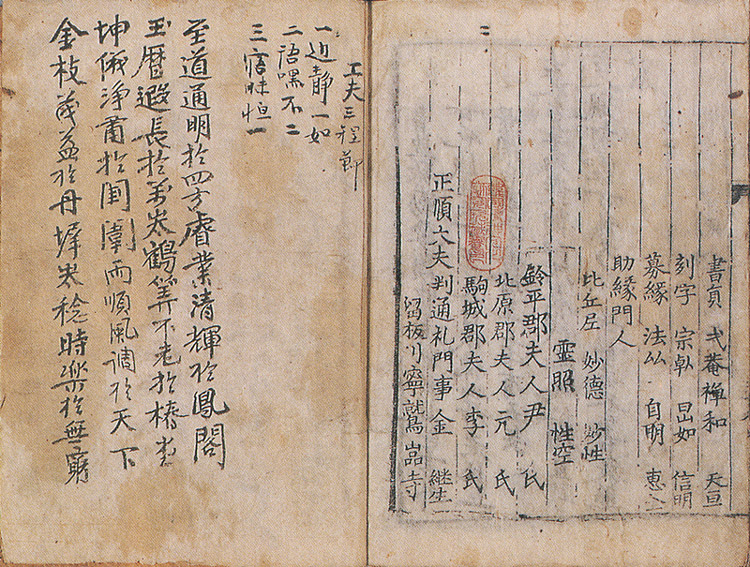 書員 弌菴禅和 天亘
刻字 宗倝 旵如 信明
募緣 法 自明 惠
助緣門人
比丘尼 妙德 妙性
靈照 性空
鈴平郡夫人尹 氏
北原郡夫人元 氏
駒城郡夫人李 氏
正順大夫判通礼門事金 継生
留板川寧鷲嵓寺
工夫三程節
一 静一如
二 语嘿不二
三 恒一
至道通明於四方睿業清輝於鳳閣
玉曆遐長於万岁鶴筭不老於椿
坤儀浄肅於閨闈雨順風调於天下
金枝茂益於丹墀岁稔時樂於無窮